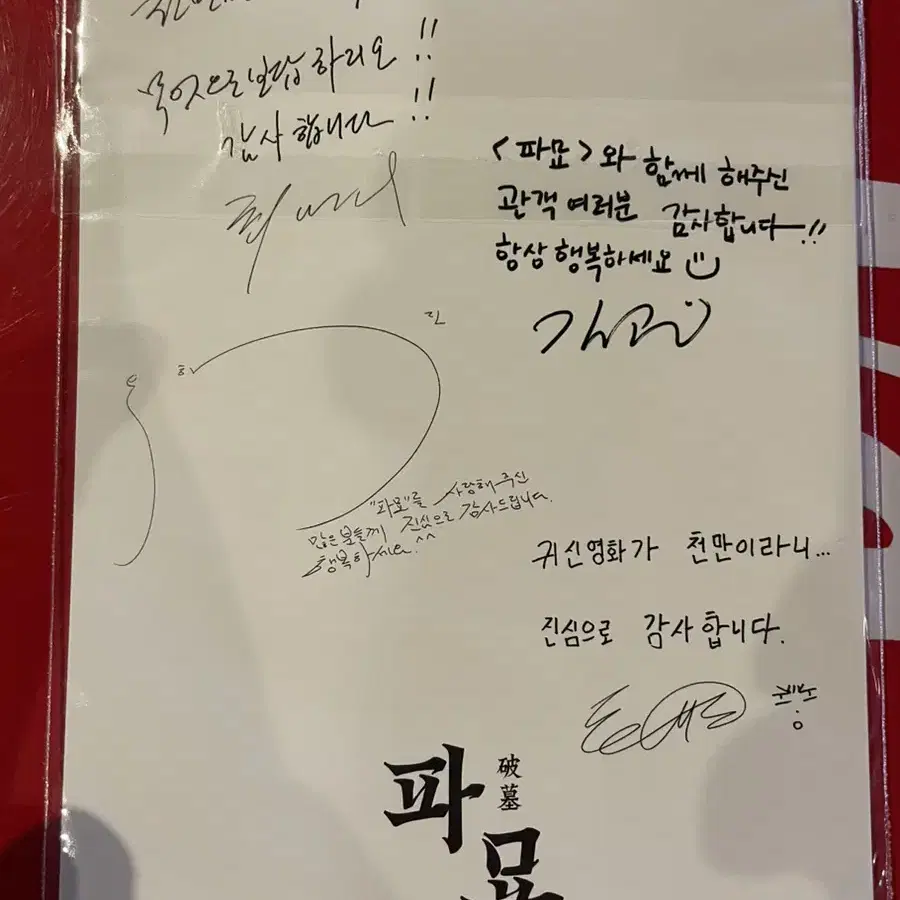 보답하리오!!
감사합니다!!
<파묘>와 함께 해주신
관객 여러분 감사합니다!!
항상 행복하세요
김고은
유 해 진
"파묘"를 사랑해주신
많은 분들께 진심으로 감사드립니다.
행복하세요!
귀신영화가 천만이라니...
진심으로 감사합니다.
파묘
破墓